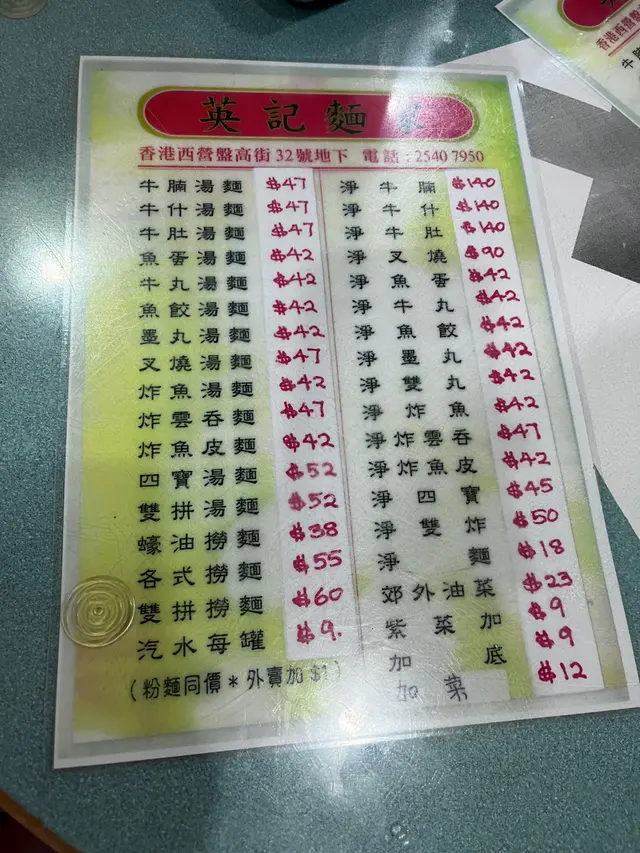 英記麵
香港西營盤高街32號地下 電話：2540 7950
牛腩湯麵 $47 淨牛腩 $140
牛什湯麵 $47 淨牛什 $140
牛肚湯麵 $47 淨牛肚 $140
魚蛋湯麵 $42 淨叉燒 $90
牛丸湯麵 $42 淨魚蛋 $42
魚餃湯麵 $42 淨牛丸 $42
墨丸湯麵 $42 淨魚餃 $42
叉燒湯麵 $47 淨墨丸 $42
炸魚湯麵 $42 淨雙丸 $42
炸雲吞麵 $47 淨炸魚 $42
炸魚皮麵 $42 淨炸雲吞 $47
四寶湯麵 $52 淨炸魚皮 $42
雙拼湯麵 $52 淨四寶 $45
蠔油撈麵 $38 淨雙炸 $50
各式撈麵 $55 淨麵 $18
雙拼撈麵 $60 郊外油菜 $23
汽水每罐 $9. 紫菜加 $9
加底 $9
(粉麵同價*外賣加$1) 加菜 $12
香港西營盤